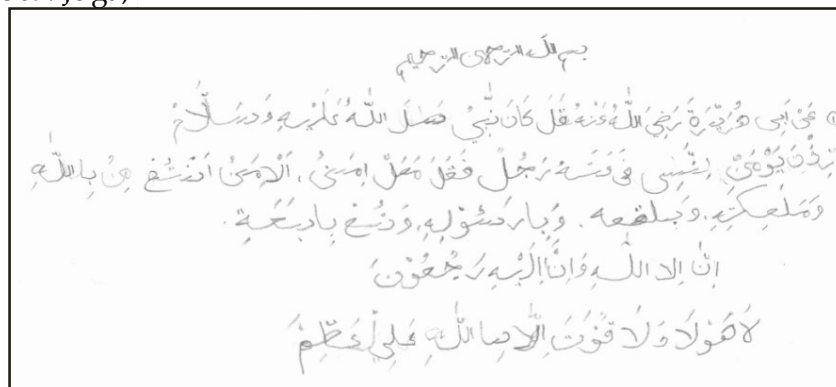 بسم الله الرحمن الرحيم
عَنْ اَبِى هُرَيْرَةَ رَضِيَ اللّٰهُ عَنْهُ قَلَ كَانَ نَّبِيْ صَلَ اللّٰهُ عَلَيْهِ وَسَلَّامْ
يَوْمَنْ لِنَّسِى فَ رَجُلً فَقَلَ مَلْ اِمَنُ، اَلْاِمَنُ مِنُ بِاللّٰهِ
وَمَلَعِكَتِهِ، وَبِلقعِه . وَبِارَسُوْلِهِ، وَتُؤْ بِابَعَةِ.
اِنّ الا اللّٰهِ وَاِنَّااِلَيْهِ رَجُعُوْنَ
لاَهَوْلَا وَلَا قُوَّتَ اِلَّا بِااللّٰهِ عَلِيْ عَظِّمْ